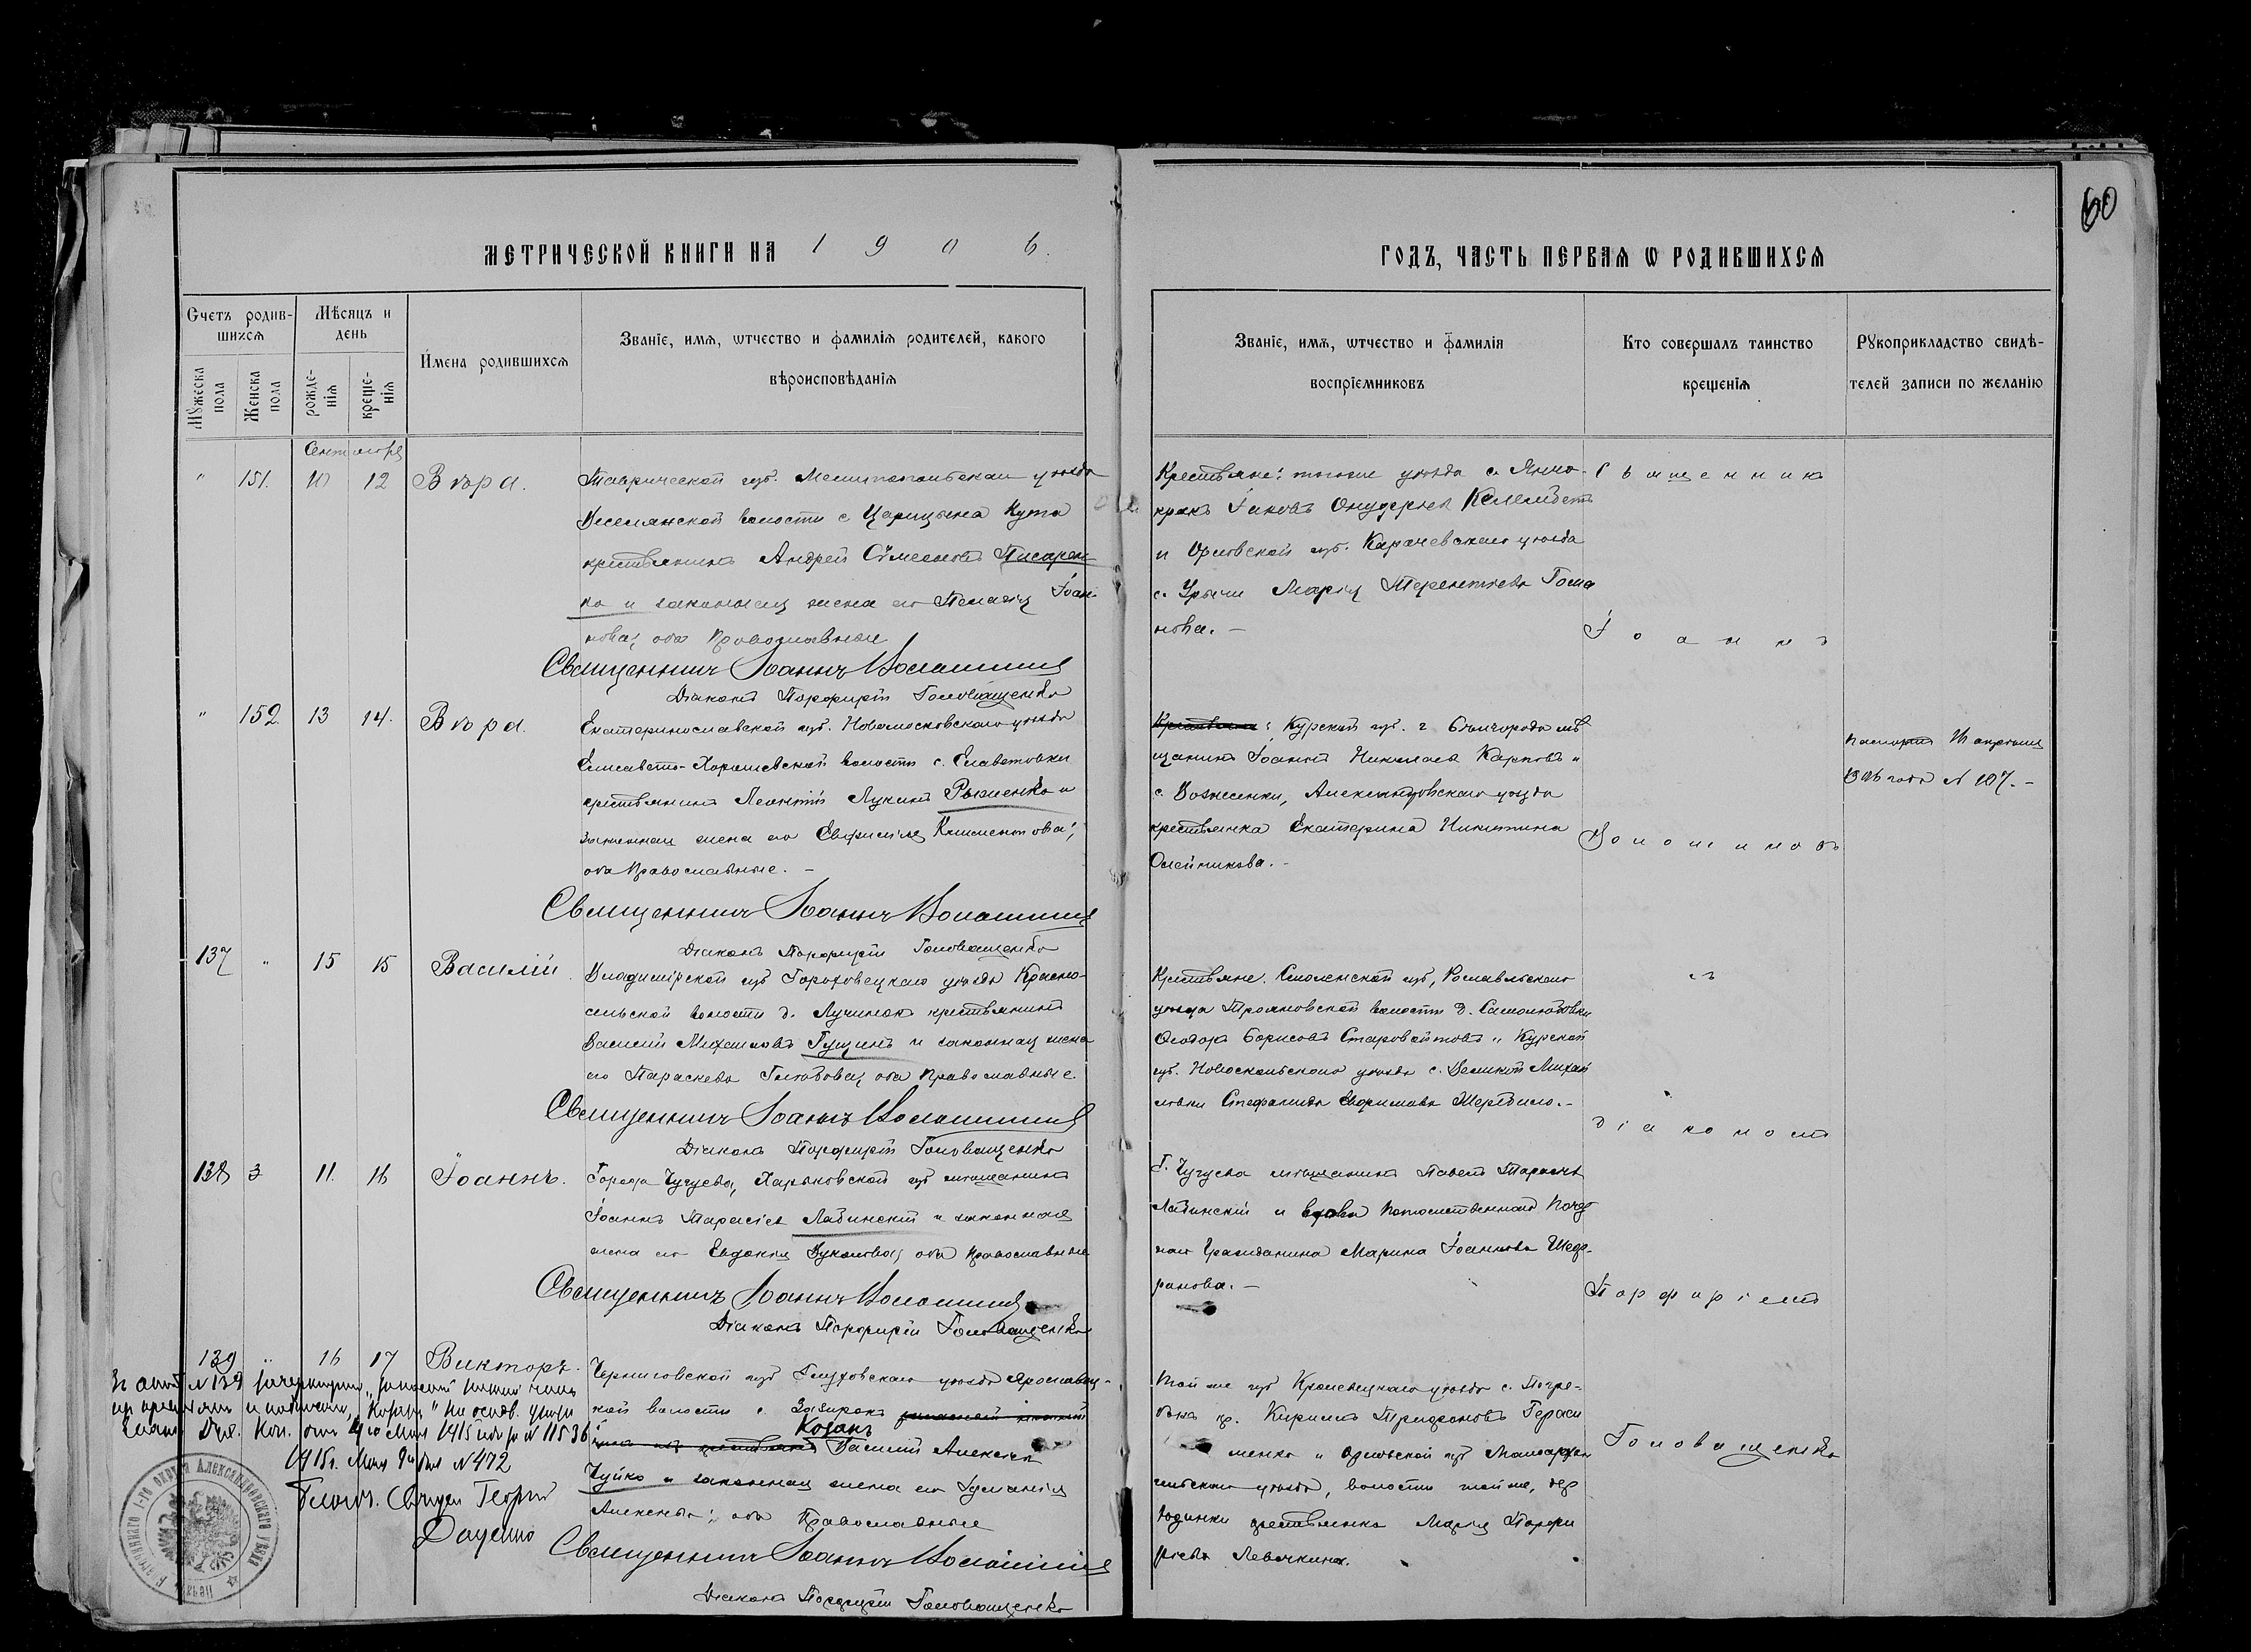 60
МЕТРИЧЕСКОЙ КНИГИ НА 1906.
ГОДЪ, ЧАСТЬ ПЕРВАЯ Ѡ РОДИВШИХСЯ
Счетъ родив-
шихся
Мѣсяцъ и
день
Мꙋжеска пола
Женска пола
рожде-
нія
креще-
нія
Имена родившихся
Званіе, имя, ѡтчество и фамилія родителей, какого
вѣроисповѣданія
Званіе, имя, ѡтчество и фамилія
воспріемниковъ
Кто совершалъ таинство
крещенія
Рꙋкоприкладство свидѣ-
телей записи по желанію
Сентября
" 151. 10 12 Вѣра.
Таврической губ. Мелитопольскаго уѣзда
Веселянской волости с Царицына Кута
крестьянинъ Андрей Сѵмеоновъ Писарен-
ко и законная жена его Пелагія Іоан-
нова; оба православные
Священникъ Іоаннъ Волошиновъ
Діаконъ Порфирій Головащенко
Крестьяне: того же уѣзда с. Янчо-
кракъ Іаковъ
и Орловской губ. Карачевскаго уѣзда
Марія Терентіева Гома
нова. –
" 152 13 14. Вѣра.
Екатеринославской губ. Новомосковскаго уѣзда
Елисавето-Хорошевской волости с. Елаветовки
крестьянинъ Леонтій Лукинъ Рыженко и
законная жена его Евфимія Климентова;
оба православные. –
Священникъ Іоаннъ Волошиновъ
Діаконъ Порфирій Головащенко
Крестьяне: Курской губ. г Бѣлгорода мѣ
щанинъ Іоаннъ Николаевъ Карповъ и
с. Вознесенки, Александровскаго уѣзда
крестьянка Екатерина Никитина
Олейникова. –
1906 года № 107. –
137 " 15 15 Василій
Владимірской губ Гороховецкаго уѣзда Красно-
сельской волости д. Лучинокъ крестьянинъ
Василій Михаиловъ Гущинъ и законная жена
его Параскева Глѣбова; оба православные.
Священникъ Іоаннъ Волошиновъ
Діаконъ Порфирій Головащенко
Крестьяне. Смоленской губ, Рославльскаго
уѣзда Трояновской волости д.
Ѳеодоръ Борисовъ Старовойтовъ и Курской
губ. Новоскольскаго уѣзда с. Великой Михай
ловки Стефанида Евфимова
138 3 11. 16 Іоаннъ.
Города Чугуева, Харьковской губ мѣщанинъ
Іоаннъ Тарасіевъ Лабинскій и законная
жена его Евдокія Луколова; оба православные
Священникъ Іоаннъ Волошиновъ
Діаконъ Порфирій Головащенко
Г. Чугуева мѣщанинъ Павелъ Тарасіевъ
Лабинскій и вдова потомственнаго почет
наго гражданина Марина Іоаннова
ранова. –
139 " 16 17 Викторъ.
Черниговской губ Глуховскаго уѣзда Ярославец-
кой волости с.
Козакъ
Василій Алексіевъ
Чуйко и законная жена его
Алексѣева; оба православные
Священникъ Іоаннъ Волошиновъ
Діаконъ Порфирій Головащенко
Той же губ Кролевецкаго уѣзда с. Погре-
бокъ кр. Кириллъ Трифоновъ Гераси
менко и Орловской губ Малоархан
гельскаго уѣзда, волости той же, дер
Юдинки крестьянка Марія Порфи
ріева Левочкина.
Священникъ
Іоаннъ
Волошиновъ
съ
діакономъ
Порфиріемъ
Головащенко
1915 г. Мая 9 дня № 472
Благоч. Свящ. Георгій
Даценко